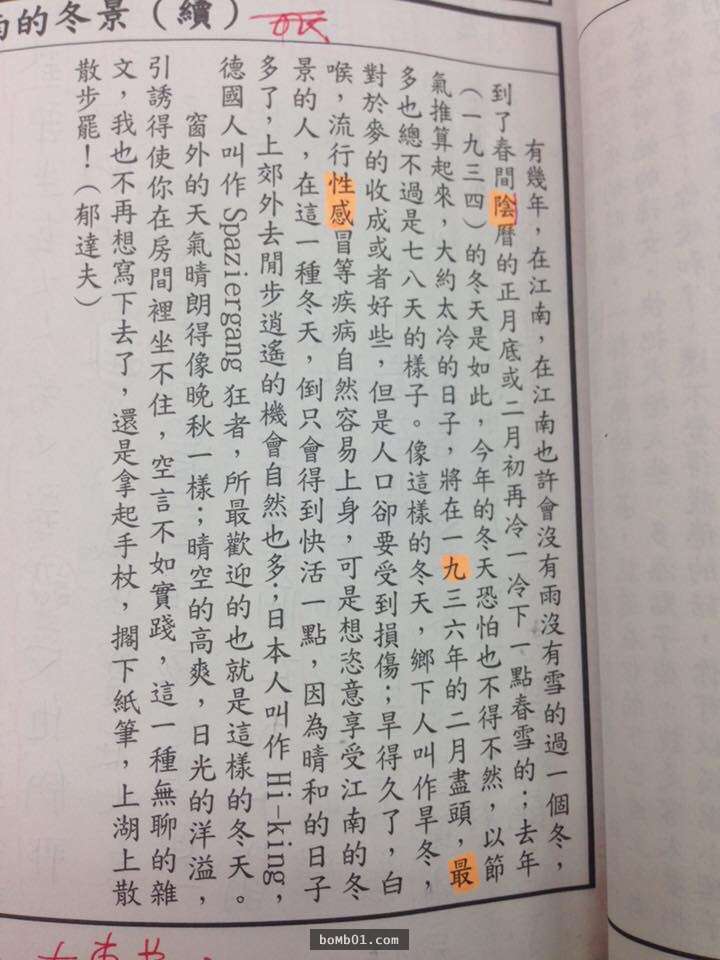 南的冬景（續）
有幾年，在江南，在江南也許會沒有雨沒有雪的過一個冬，
到了春間陰曆的正月底或二月初再冷一冷下一點春雪的；去年
（一九三四）的冬天是如此，今年的冬天恐怕也不得不然，以節
氣推算起來，大約太冷的日子，將在一九三六年的二月盡頭，最
多也總不過是七八天的樣子。像這樣的冬天，鄉下人叫作旱冬，
對於麥的收成或者好些，但是人口卻要受到損傷；旱得久了，白
喉，流行性感冒等疾病自然容易上身，可是想恣意享受江南的冬
景的人，在這一種冬天，倒只會得到快活一點，因為晴和的日子
多了，上郊外去閒步逍遙的機會自然也多；日本人叫作 Hi-king，
德國人叫作 Spaziergang 狂者，所最歡迎的也就是這樣的冬天。
窗外的天氣晴朗得像晚秋一樣；晴空的高爽，日光的洋溢，
引誘得使你在房間裡坐不住，空言不如實踐，這一種無聊的雜
文，我也不再想寫下去了，還是拿起手杖，擱下紙筆，上湖上散
散步罷！（郁達夫）
boMb01.com